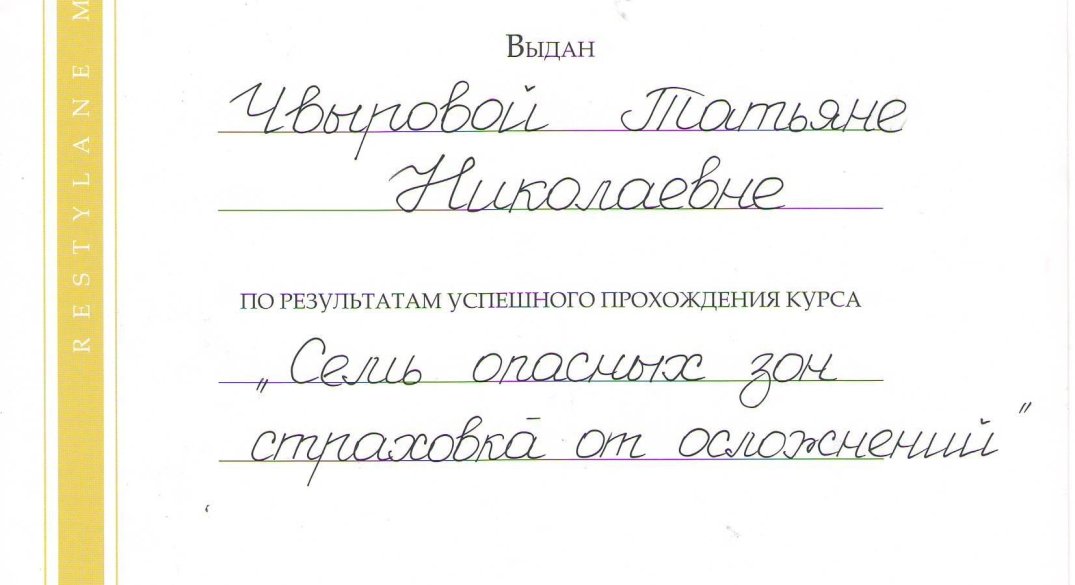 RESTYLANE M
Выдан
Чвыровой Татьяне
Николаевне
ПО РЕЗУЛЬТАТАМ УСПЕШНОГО ПРОХОЖДЕНИЯ КУРСА
„Семь опасных зон
страховка от осложнений"